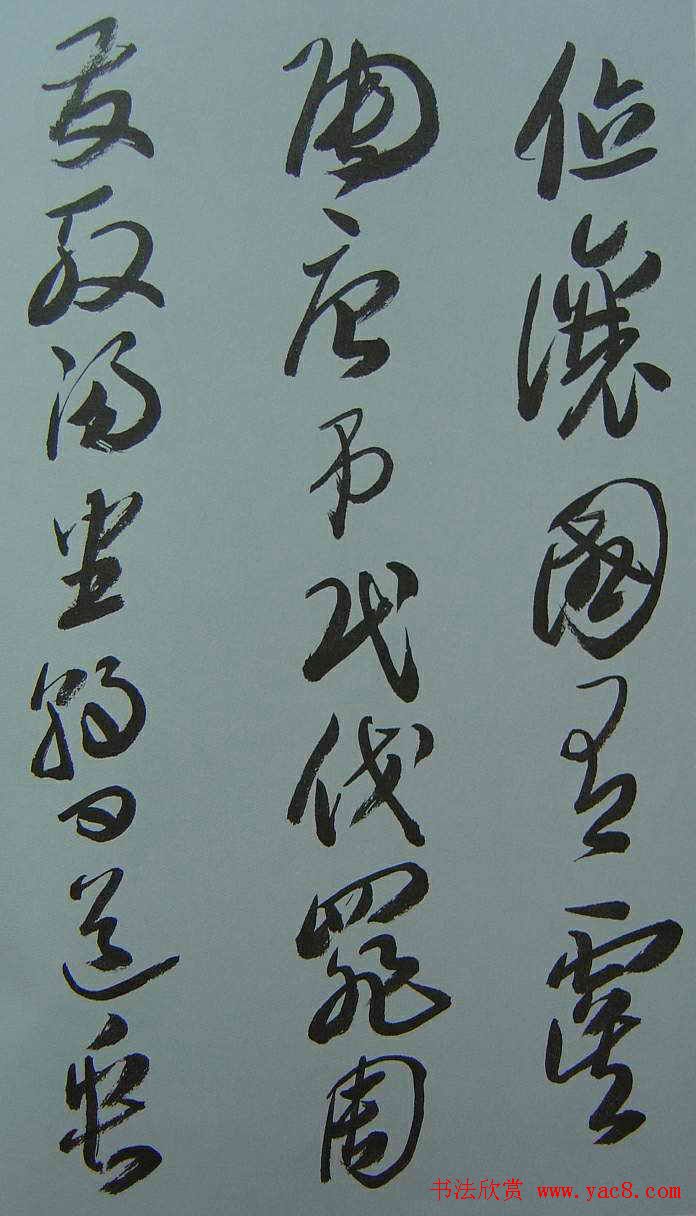 位讓國有虞
陶唐弔民伐罪周
發殷湯坐朝問道垂
书法欣赏 www.yac8.com